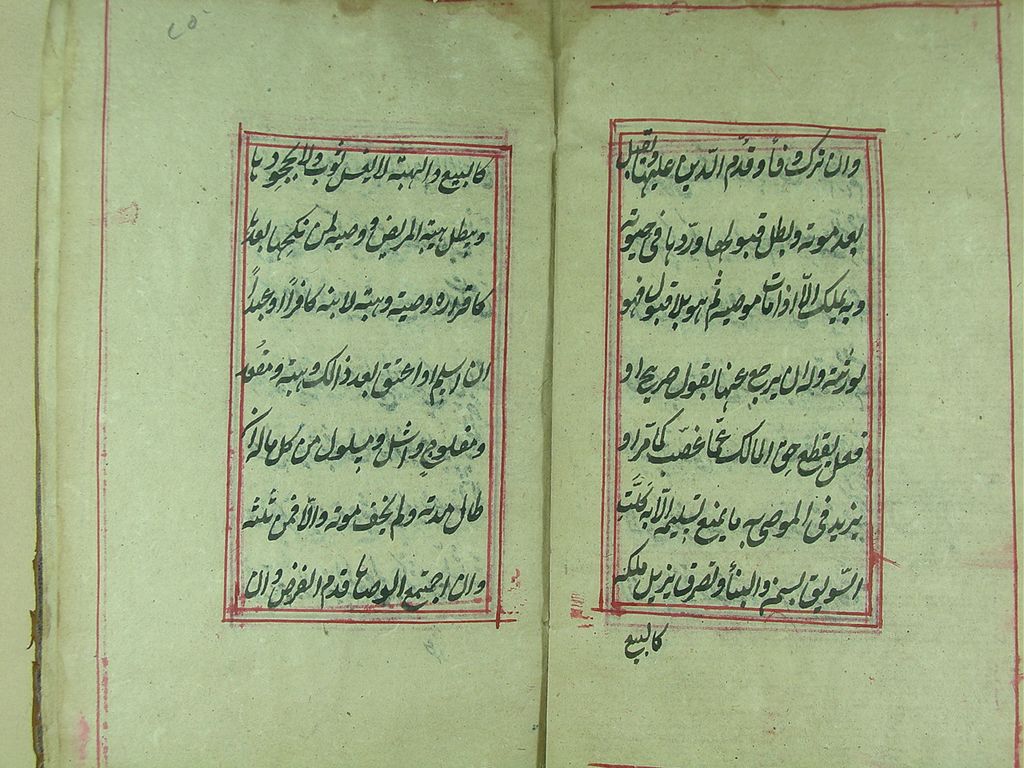 وان ترك وفاً وقدم الدين عليها وتقبل
بعد موته وبطل قبولها وردها فى حيوته
وبه يملك الّا اذا مات موصيه ثم هو بلا قبول فهو
لورثته وله ان يرجع عنها بقول صريح او
فعل يقطع حق المالك عمّا غصب كما مرّ او
يزيد فى الموصى به ما يمنع تسليمه الّا به كلتّ
السّويق بسمن والبنأ وتصرف يزيل ملكه
كالبيع
كالبيع والهبة لا بغسل ثوب ولا بجحودها
وبطل هبة المريض ووصيته لمن نكحها بعدها
كاقراره ووصيته وهبته لابنه كافراً او عبداً
ان اسلم او اعتق بعد ذالك وهبة ومقعد
ومفلوج واشل ومسلول من كل ماله ان
طال مدته ولم يخف موته والّا فمن ثلثه
وان اجتمع الوصايا قدم الفرض وان